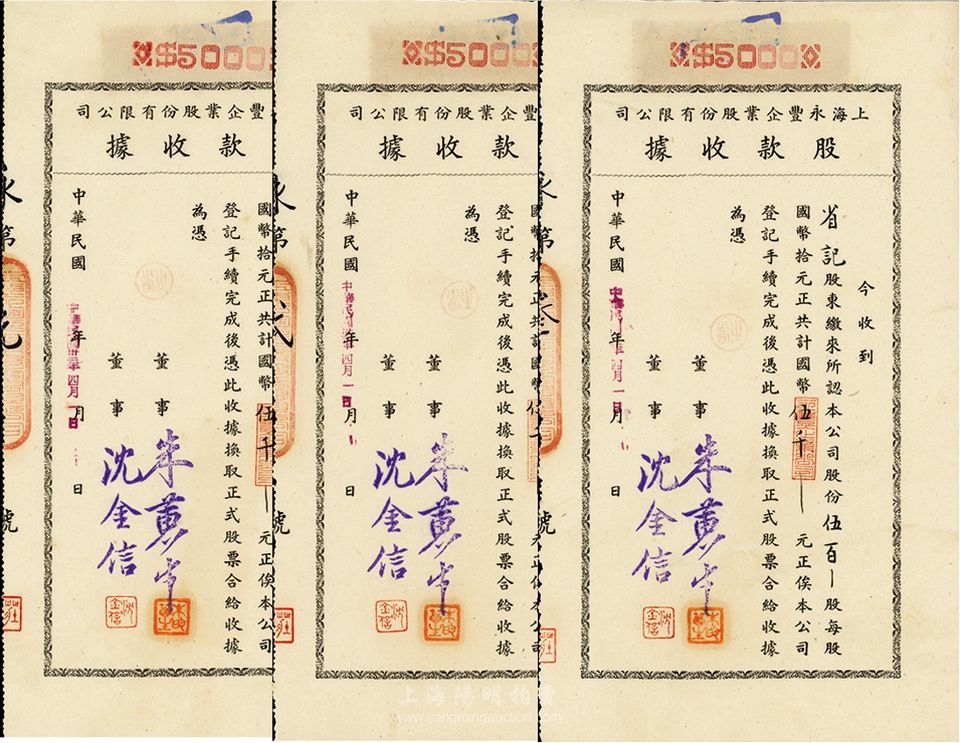 $5000
上海永豐企業股份有限公司
股款收據
今收到
省記股東繳來所認本公司股份伍百股每股
國幣拾元正共計國幣伍千元正俟本公司
登記手續完成後憑此收據換取正式股票合給收據
為憑
董事
董事
沈金信
中華民國
年四月一日
月
日
$5000
豐企業股份有限公司
款收據
國幣拾元正共計國幣
元正俟本公司
登記手續完成後憑此收據換取正式股票合給收據
為憑
董事
董事
沈金信
中華民國
年四月一日
月
日
號
$5000
豐企業股份有限公司
款收據
國幣拾元正共計國幣伍千元正俟本公司
登記手續完成後憑此收據換取正式股票合給收據
為憑
董事
董事
沈金信
中華民國
年四月一日
月
日
永第
號
上海陽明拍賣
www.yangmingauction.com